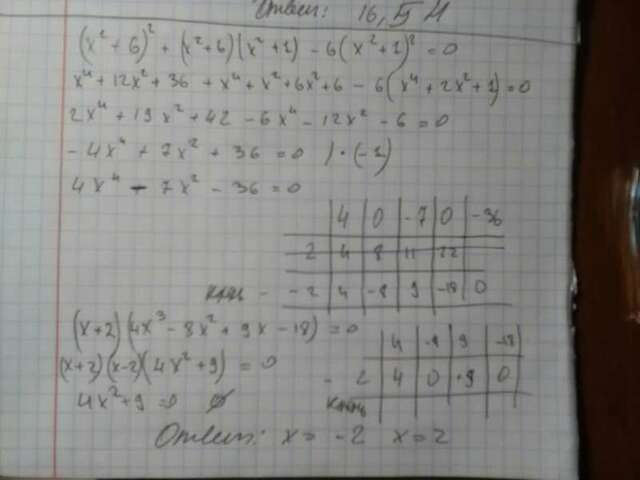 Ответ: 16,5 Н
(x² + 6)² + (x² + 6)(x² + 1) - 6(x² + 1)² = 0
x⁴ + 12x² + 36 + x⁴ + x² + 6x² + 6 - 6(x⁴ + 2x² + 1) = 0
2x⁴ + 19x² + 42 - 6x⁴ - 12x² - 6 = 0
- 4x⁴ + 7x² + 36 = 0 ) · (-1)
4x⁴ - 7x² - 36 = 0
4 0 -7 0 -36
2 4 8 11 22
-2 4 -8 9 -18 0
(x+2)(4x³ - 8x² + 9x - 18) = 0
4 -8 9 -18
(x+2)(x-2)(4x² + 9) = 0
2 4 0 +9 0
4x² + 9 = 0 ∅
Ответ: x = -2 x = 2